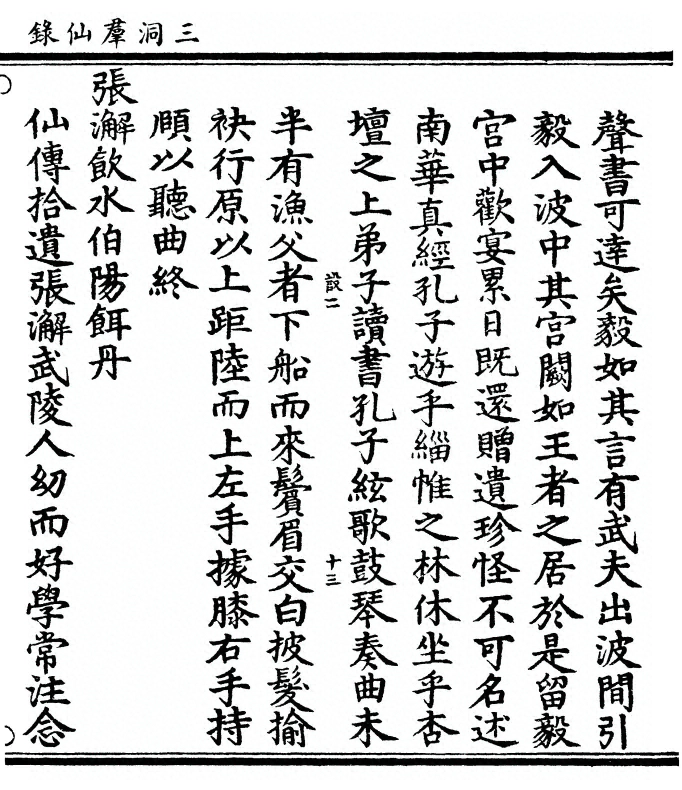 三洞羣仙錄
聲書可達矣毅如其言有武夫出波間引
毅入波中其宮闕如王者之居於是留毅
宮中歡宴累日既還贈遺珍怪不可名述
南華真經孔子遊乎緇惟之林休坐乎杏
壇之上弟子讀書孔子絃歌鼓琴奏曲未
設二
十三
半有漁父者下船而來鬢眉交白披髮揄
袂行原以上距陸而上左手據膝右手持
頤以聽曲終
張澥飲水伯陽餌丹
仙傳拾遺張澥武陵人幼而好學常注念